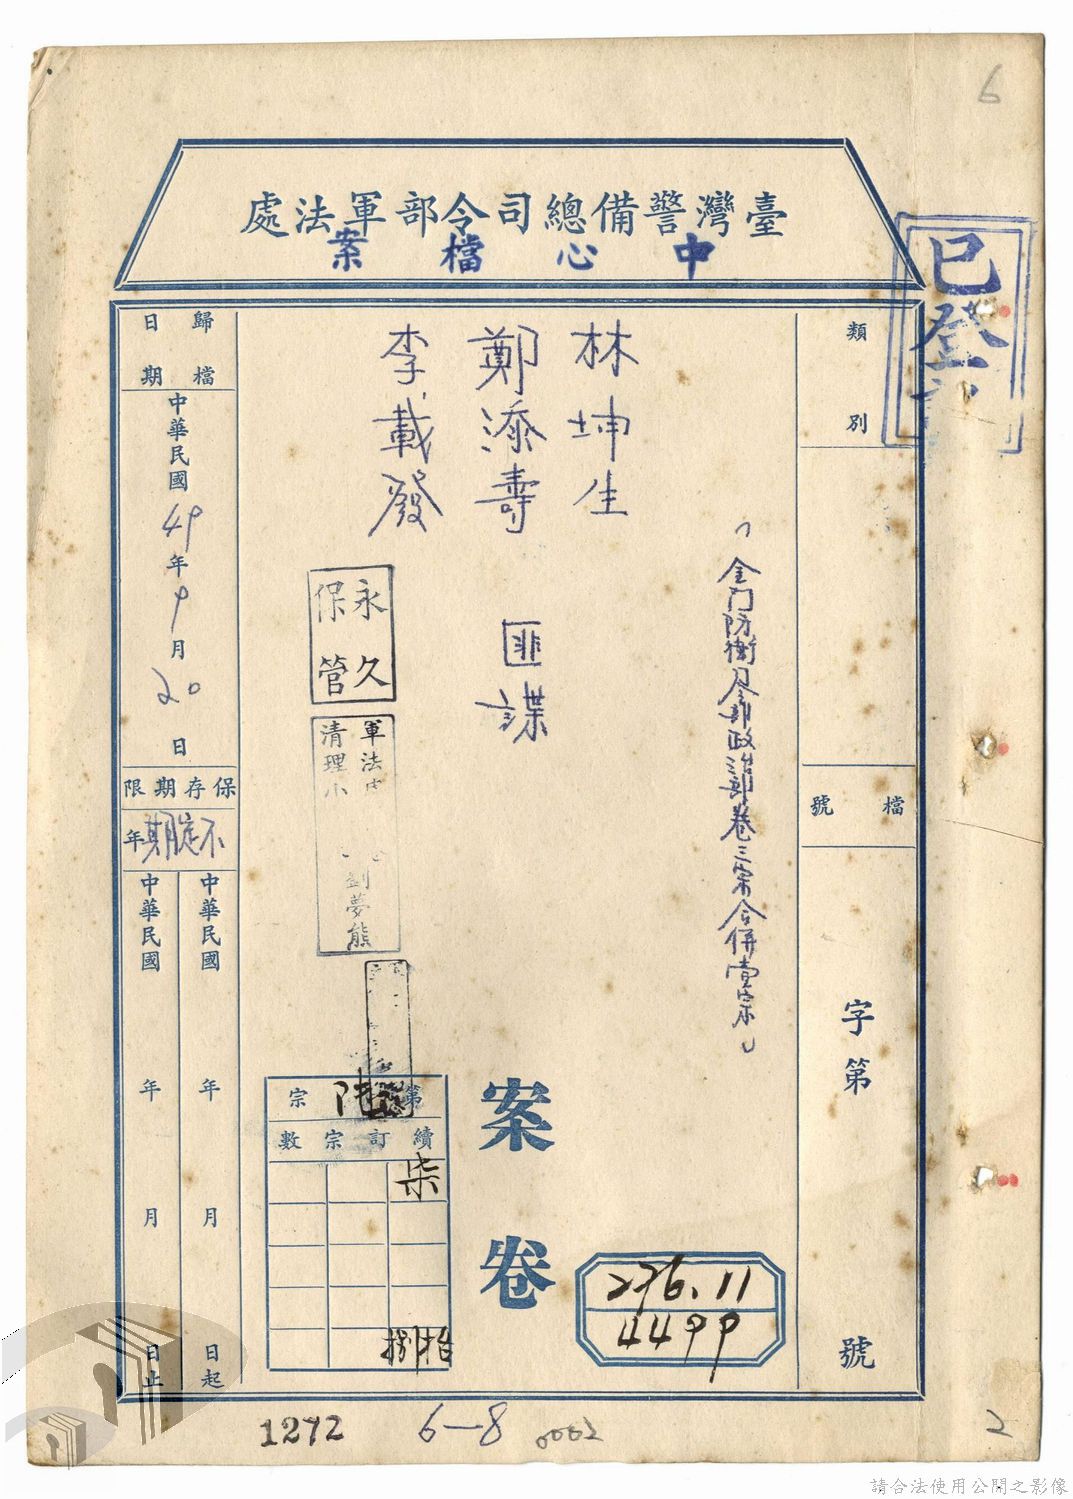 6
臺灣警備總司令部軍法處
中心檔案
已登
類別
檔號
字第
號
(金門防衛司令部政治部卷三宗合併壹宗)
林坤生
鄭添壽
李載發
匪諜
案卷
永久保管
軍法
清理小
劉夢熊
第陸宗
續訂宗數
柒
捌
拾
276.11
4499
歸檔日期
中華民國49年9月20日
保存期限
不定期年
中華民國 年 月 日起
中華民國 年 月 日止
1272
6-8
0002
2
請合法使用公開之影像